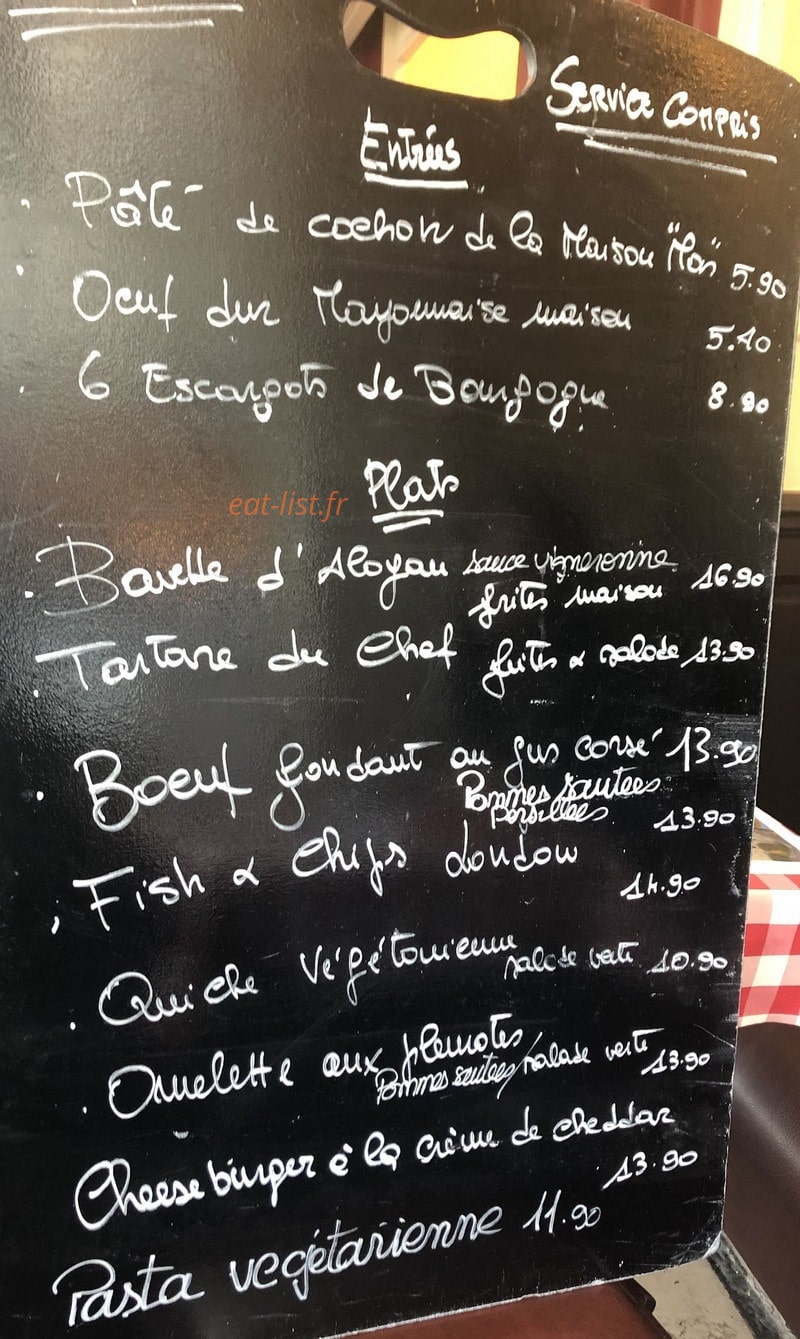 Service Compris
Entrées
· Pâté de cochon de la Maison "Mas" 5.90
· Oeuf dur Mayonnaise maison 5.40
· 6 Escargots de Bourgogne 8.90
Plats
eat-list.fr
· Bavette d'Aloyau sauce vigneronne 16.90
frites maison
· Tartare du Chef frites & salade 13.90
· Boeuf fondant au jus corsé 13.90
Pommes sautées
persillées 13.90
· Fish & Chips London 14.90
· Quiche Végétarienne salade verte 10.90
· Omelette aux pleurotes/
Pommes sautees/salade verte 13.90
Cheese burger à la crème de cheddar
13.90
Pasta vegétarienne 11.90